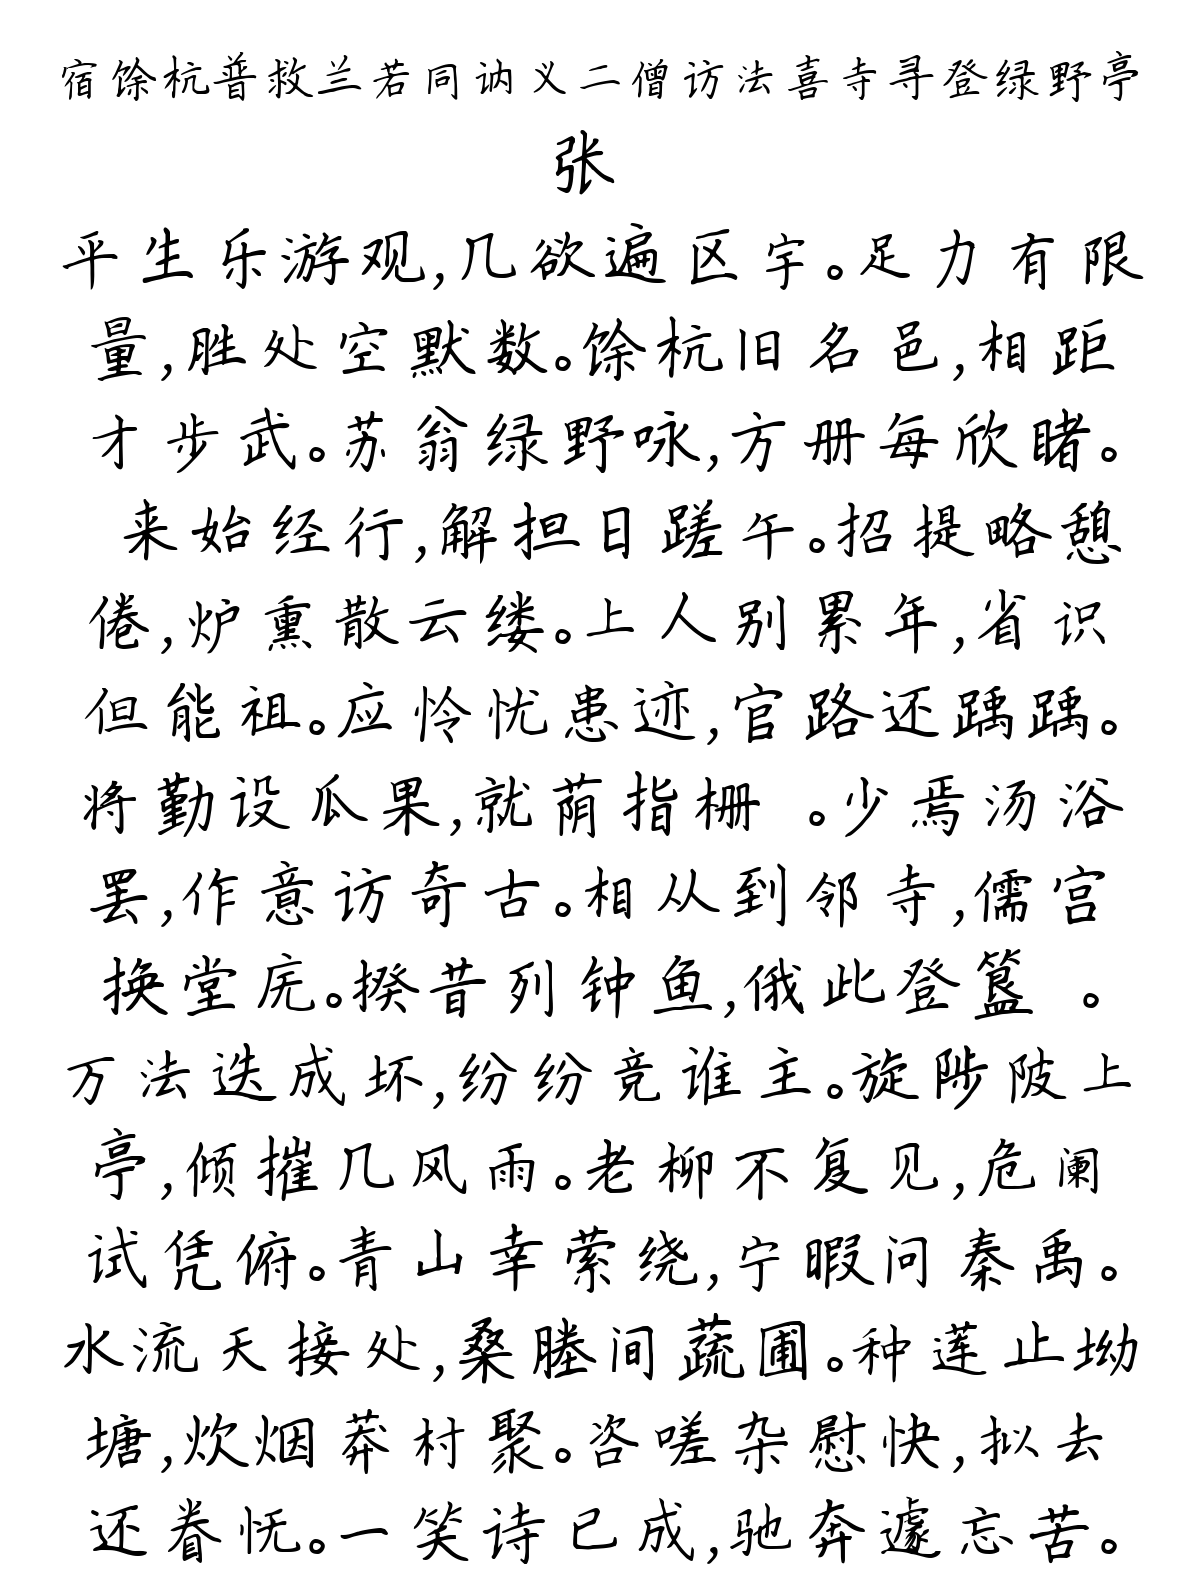 宿馀杭普救兰若同讷义二僧访法喜寺寻登绿野亭
张
平生乐游观,几欲遍区宇。足力有限
量,胜处空默数。馀杭旧名邑,相距
才步武。苏翁绿野咏,方册每欣睹。
来始经行,解担日蹉午。招提略憩
倦,炉熏散云缕。上人别累年,省识
但能祖。应怜忧患迹,官路还踽踽。
将勤设瓜果,就荫指栅 。少焉汤浴
罢,作意访奇古。相从到邻寺,儒宫
换堂庑。揆昔列钟鱼,俄此登簋 。
万法迭成坏,纷纷竞谁主。旋陟陂上
亭,倾摧几风雨。老柳不复见,危阑
试凭俯。青山幸萦绕,宁暇问秦禹。
水流天接处,桑塍间蔬圃。种莲止坳
塘,炊烟莽村聚。咨嗟杂慰快,拟去
还眷怃。一笑诗已成,驰奔遽忘苦。